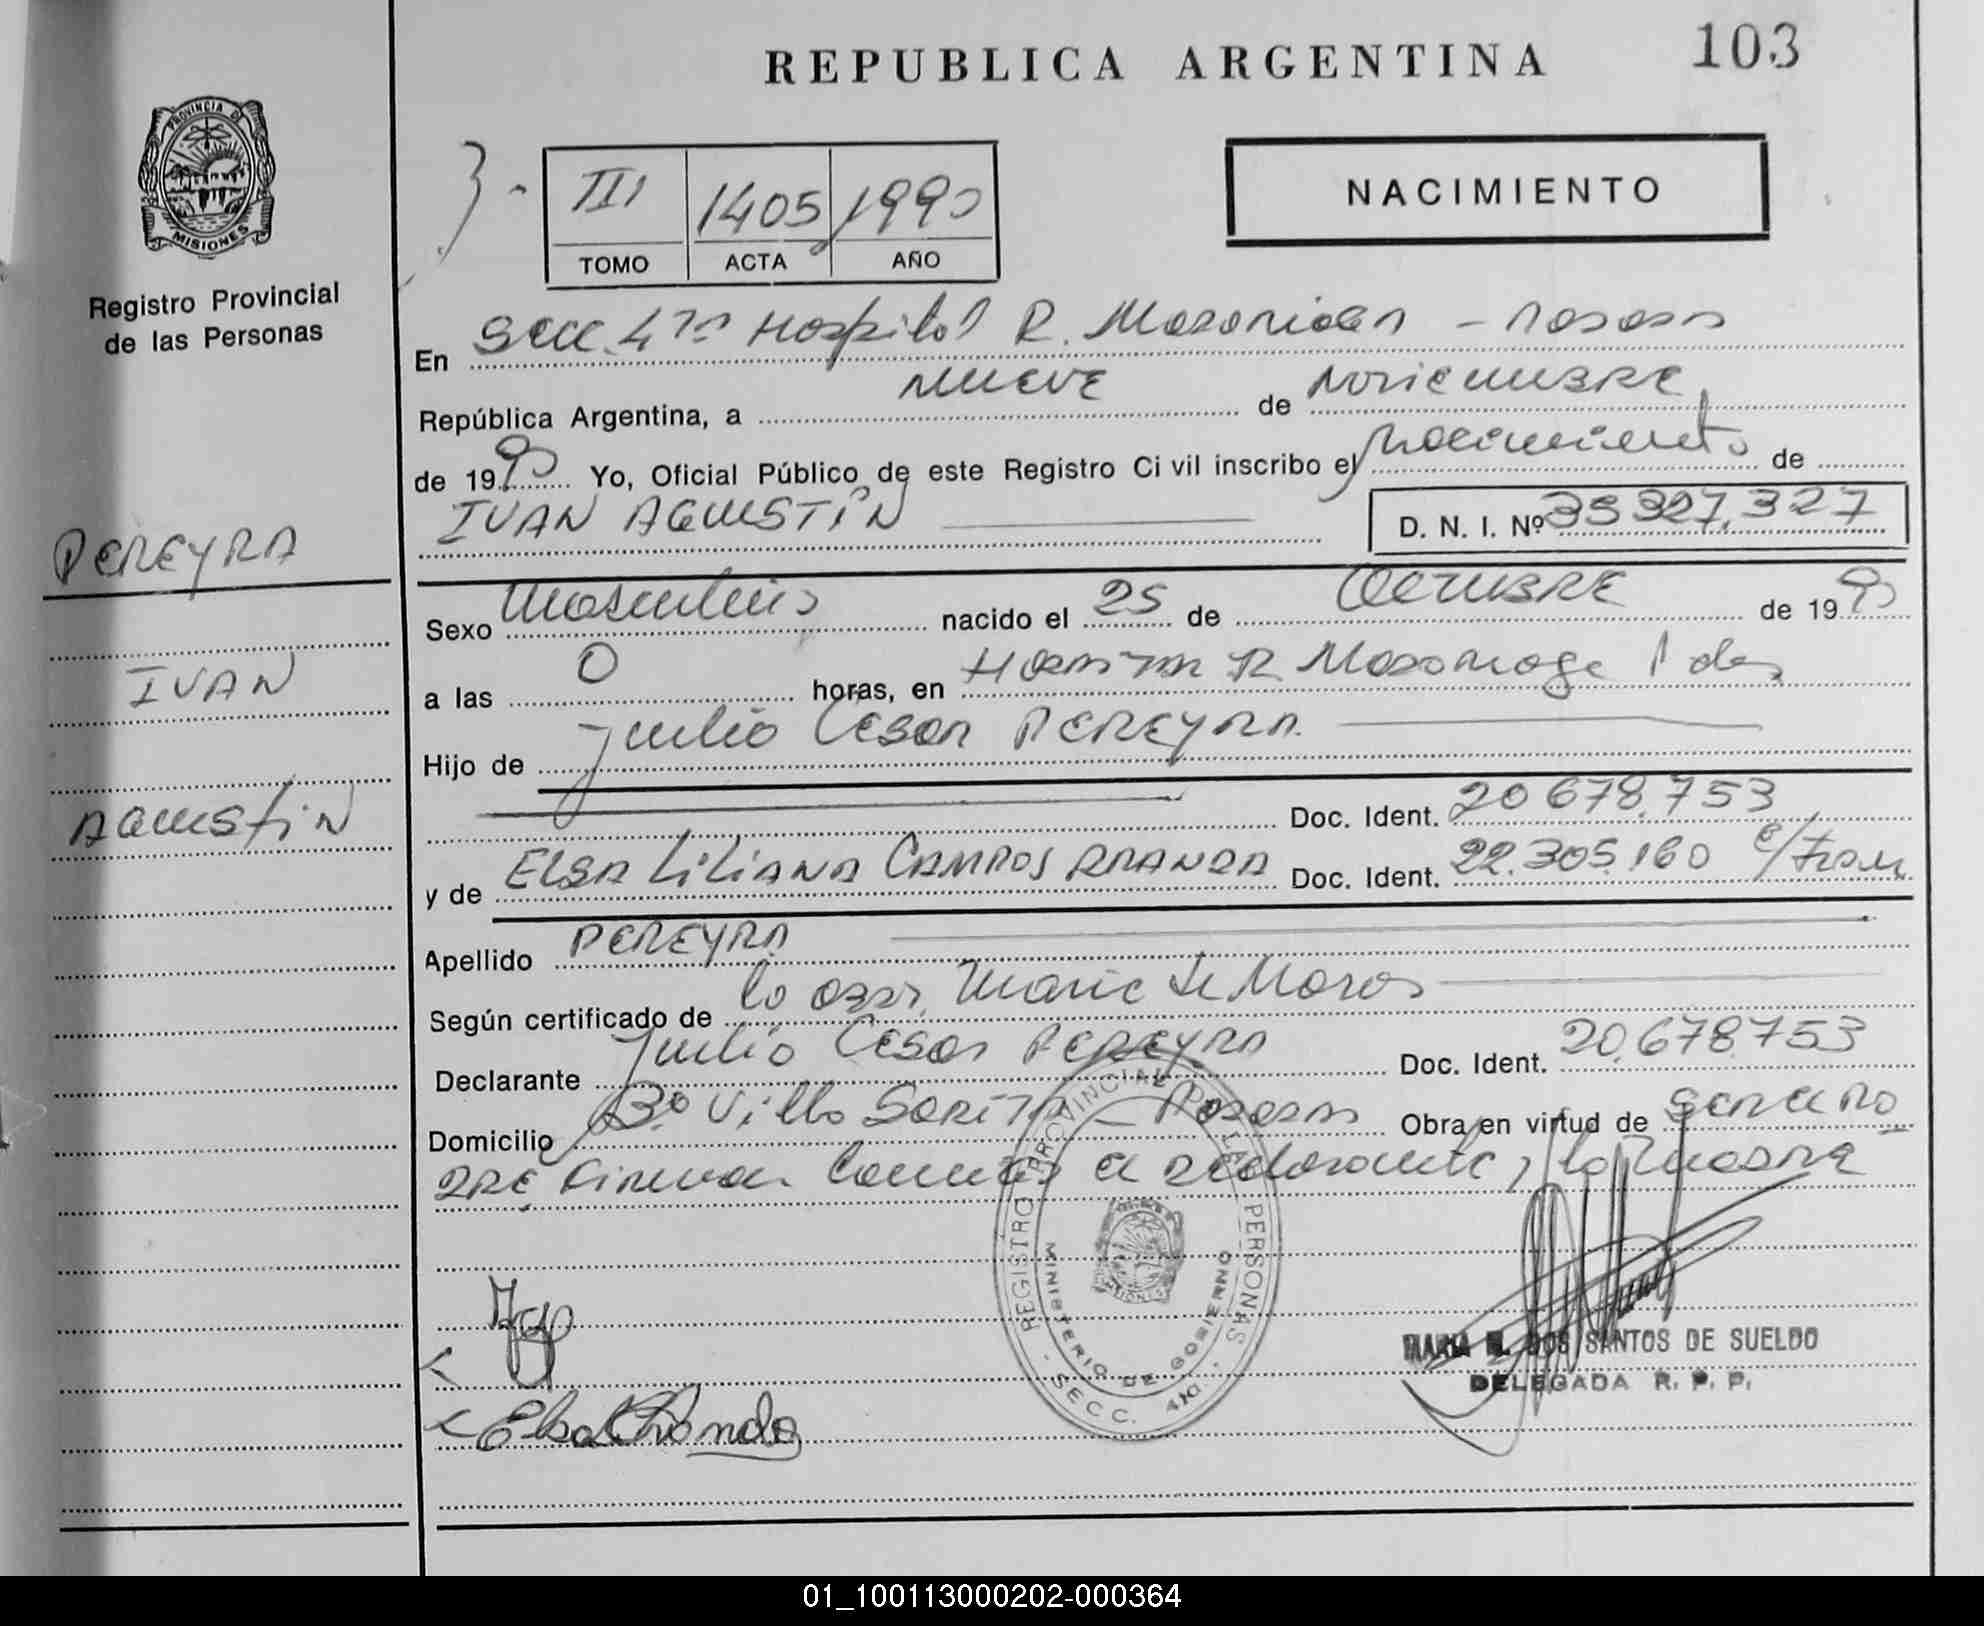 REPUBLICA ARGENTINA
103
PROVINCIA DE
MISIONES
Registro Provincial
de las Personas
III 1405 1990
TOMO ACTA AÑO
NACIMIENTO
En Secc. 4ta Hospital R. Madariaga - Posadas
República Argentina, a NUEVE de NOVIEMBRE
de 1990 Yo, Oficial Público de este Registro Civil inscribo el Nacimiento de
IVAN AGUSTIN
D. N. I. Nº 35 327.327
PEREYRA
IVAN
AGUSTIN
Sexo Masculino nacido el 25 de OCTUBRE de 1990
a las 0 horas, en R Madariaga
Hijo de Julio Cesar PEREYRA
Doc. Ident. 20 678.753
y de ELSA LILIANA CAMPOS ARANDA Doc. Ident. 22.305.160
Apellido PEREYRA
Según certificado de la
Declarante Julio Cesar PEREYRA Doc. Ident. 20.678.753
Domicilio Bº Villa - Posadas Obra en virtud de ser el PA
DRE Firman conmigo el declarante, la MADRE
REGISTRO PROVINCIAL DE LAS PERSONAS
MINISTERIO DE GOBIERNO
- SECC. 4ta. -
MISIONES
Elsa Aranda
MARIA DOS SANTOS DE SUELDO
DELEGADA R. P. P.
01_100113000202-000364